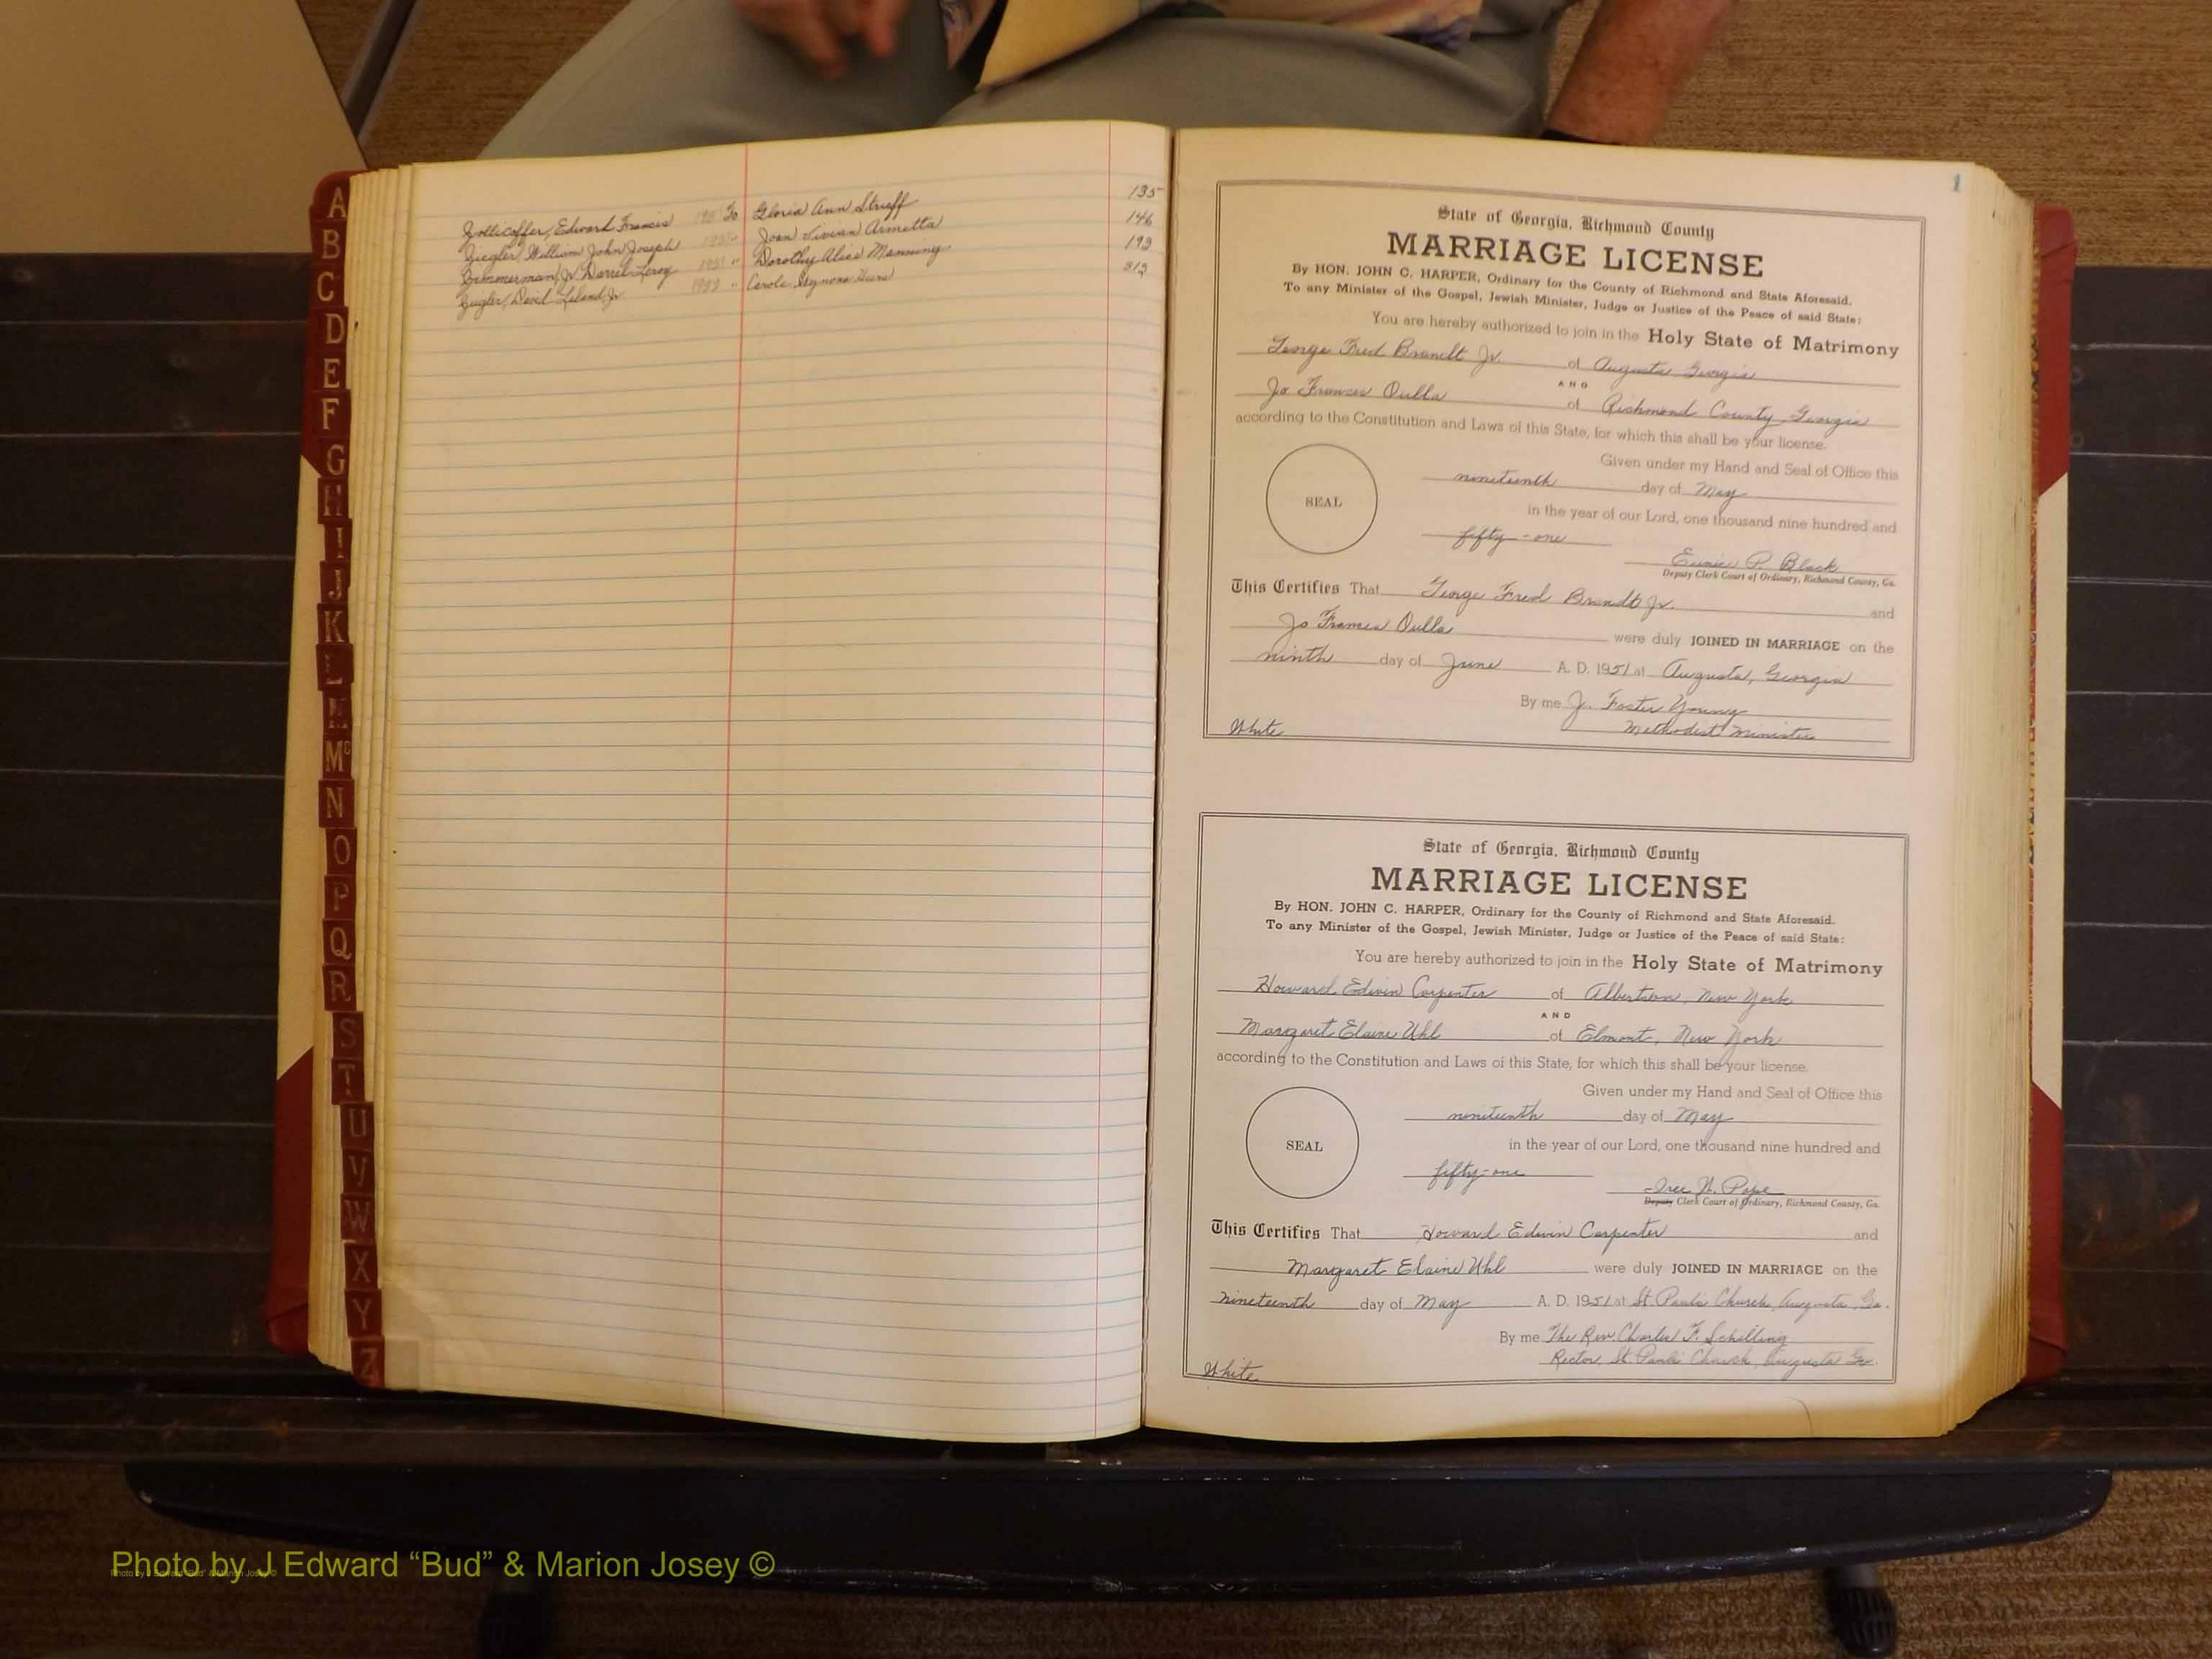 A
B
C
D
E
F
G
H
I
J
K
L
M
Mc
N
O
P
Q
R
S
T
U
V
W
X
Y
Z
Zollicoffer, Edward Francis To Gloria Ann Strieff 135
Ziegler, William John Joseph 1951 " Joan Vivian Armetta 146
Zimmerman, Jr. Darrel Leroy 1951 " Dorothy Alice Manning 193
David Leland, Jr. " Carole 313
1
State of Georgia, Richmond County
MARRIAGE LICENSE
By HON. JOHN C. HARPER, Ordinary for the County of Richmond and State Aforesaid.
To any Minister of the Gospel, Jewish Minister, Judge or Justice of the Peace of said State:
You are hereby authorized to join in the Holy State of Matrimony
George Fred Brandt Jr. of Augusta Georgia
AND
Jo Frances Oulla of Richmond County, Georgia
according to the Constitution and Laws of this State, for which this shall be your license.
Given under my Hand and Seal of Office this
SEAL
nineteenth day of May
in the year of our Lord, one thousand nine hundred and
fifty-one
Eunice P. Black
Deputy Clerk Court of Ordinary, Richmond County, Ga.
This Certifies That George Fred Brandt Jr. and
Jo Frances Oulla were duly JOINED IN MARRIAGE on the
ninth day of June A. D. 1951 at Augusta, Georgia
By me J. Foster Young
Methodist Minister
White
State of Georgia, Richmond County
MARRIAGE LICENSE
By HON. JOHN C. HARPER, Ordinary for the County of Richmond and State Aforesaid.
To any Minister of the Gospel, Jewish Minister, Judge or Justice of the Peace of said State:
You are hereby authorized to join in the Holy State of Matrimony
Howard Edwin Carpenter of Albertson, New York
AND
Margaret Elaine Uhl of Elmont, New York
according to the Constitution and Laws of this State, for which this shall be your license.
Given under my Hand and Seal of Office this
SEAL
nineteenth day of May
in the year of our Lord, one thousand nine hundred and
fifty-one
Pope
Deputy Clerk Court of Ordinary, Richmond County, Ga.
This Certifies That Howard Edwin Carpenter and
Margaret Elaine Uhl were duly JOINED IN MARRIAGE on the
nineteenth day of May A. D. 1951 at St. Pauls Church, Augusta, Ga.
By me The Rev. Charles F. Schilling
Rector, St. Pauls Church, Augusta Ga.
White
Photo by J Edward “Bud” & Marion Josey ©
Photo by J Edward “Bud” & Marion Josey ©